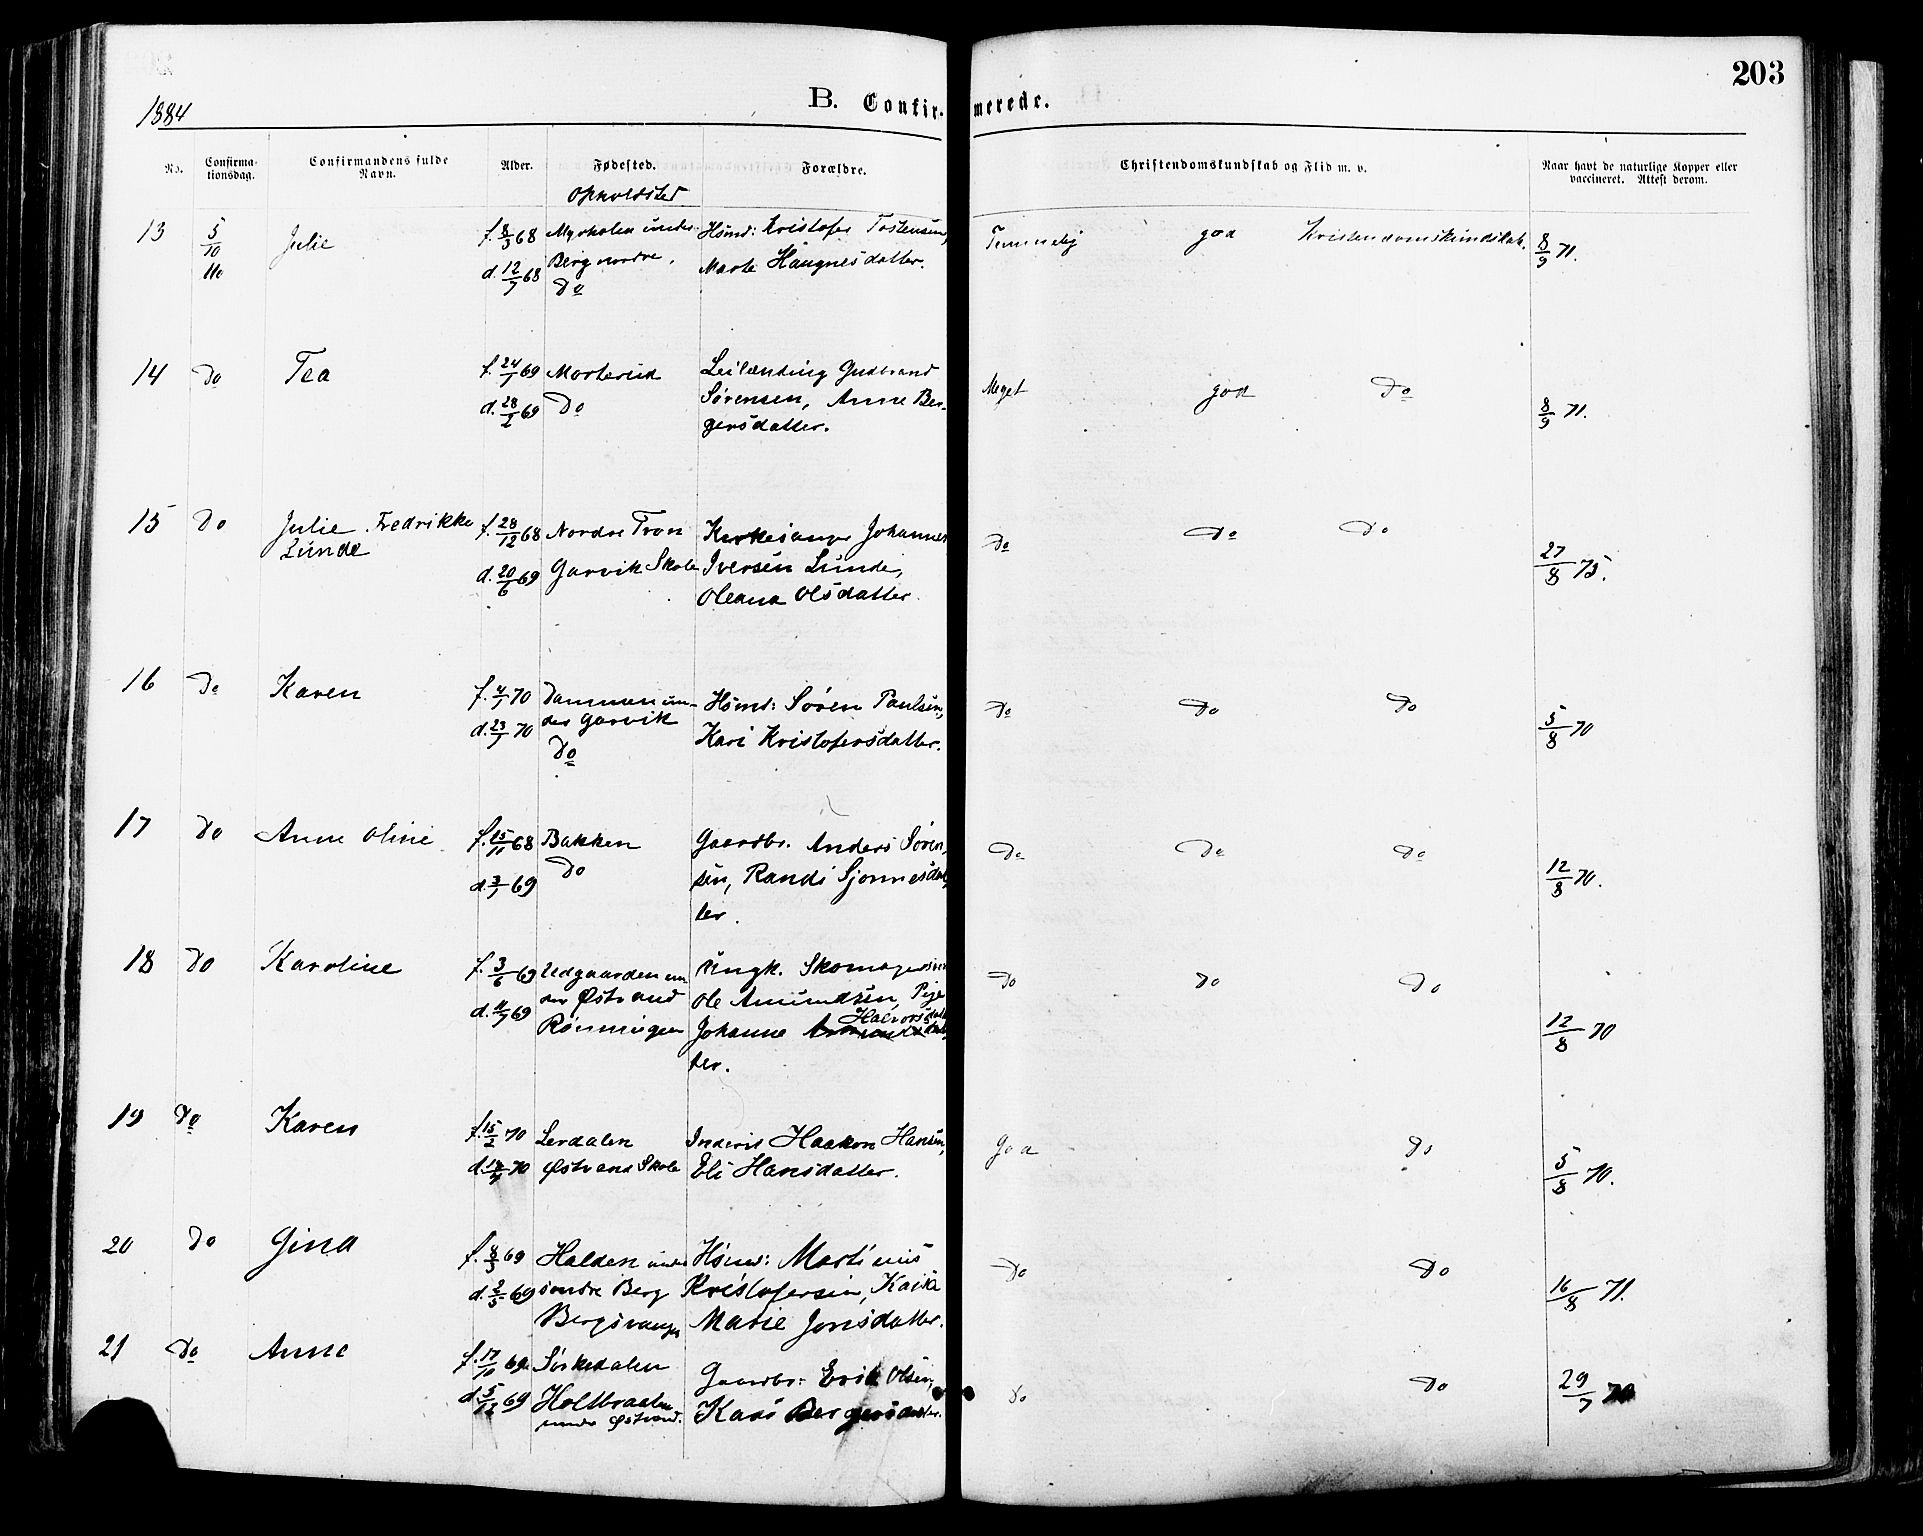 203
1884
B. Confir-
merede.
No.
Confirma-
tionsdag.
Confirmandens fulde
Navn.
Alder.
Fødested.
Opholdsted
Forældre.
Christendomskundskab og Flid m. v.
Naar havt de naturlige Kopper eller
vaccineret. Attest derom.
13 5/10 Julie f. 8/3 68 Myrholen under Hsmd: Kristofer Tostensen, Temmelig god Kristendomskundskab. 8/9 71.
d. 12/7 68 Berg nordre. Marte Haagnesdatter.
Do
14 Do Tea f. 24/1 69 Morterud Leilænding Gudbrand Meget god Do 8/9 71.
d. 28/2 69 Do Sørensen, Anne Ber-
gersdatter.
15 Do Julie Fredrikke f. 28/12 68 Nordre Tron Kirkesanger Johannes Do Do Do 27/8 75.
Lunde d. 20/6 69 Garvik Skole Iversen Lunde,
Oleana Olsdatter.
16 Do Karen f. 4/1 70 Dammen un- Hsmd: Søren Paulsen, Do Do Do 5/8 70
d. 23/1 70 der Garvik Kari Kristofersdatter.
Do
17 Do Anne Oline f. 15/11 68 Bakken Gaardbr. Anders Søren- Do Do Do 12/8 70.
d. 3/1 69 Do sen, Randi Sjonnesdat-
ter.
18 Do Karoline f. 3/6 69 Udgaarden un- Ungk. Skomagersvend Do Do Do 12/8 70
d. 11/7 69 der Østrand Ole Amundsen, Pige
Rønningen Johanne Halvorsdatt
ter.
19 Do Karen f. 15/2 70 Lerdalen Inderst Haakon Hansen, God Do 5/8 70.
d. 18/4 70 Østrand Skole Eli Hansdatter.
20 Do Gina f. 8/3 69 Halden under Hsmd: Martinus Do Do 16/8 71.
d. 2/5 69 søndre Berg Kristofersen, Kaisa
Bergsvangen Marie Jonsdatter.
21 Do Anne f. 17/10 69 Sørkedalen Gaardbr: Erik Olsen, Do Do 29/7 70
d. 5/12 69 Holtbraaten Kari Bergersdatter.
under Østrand.